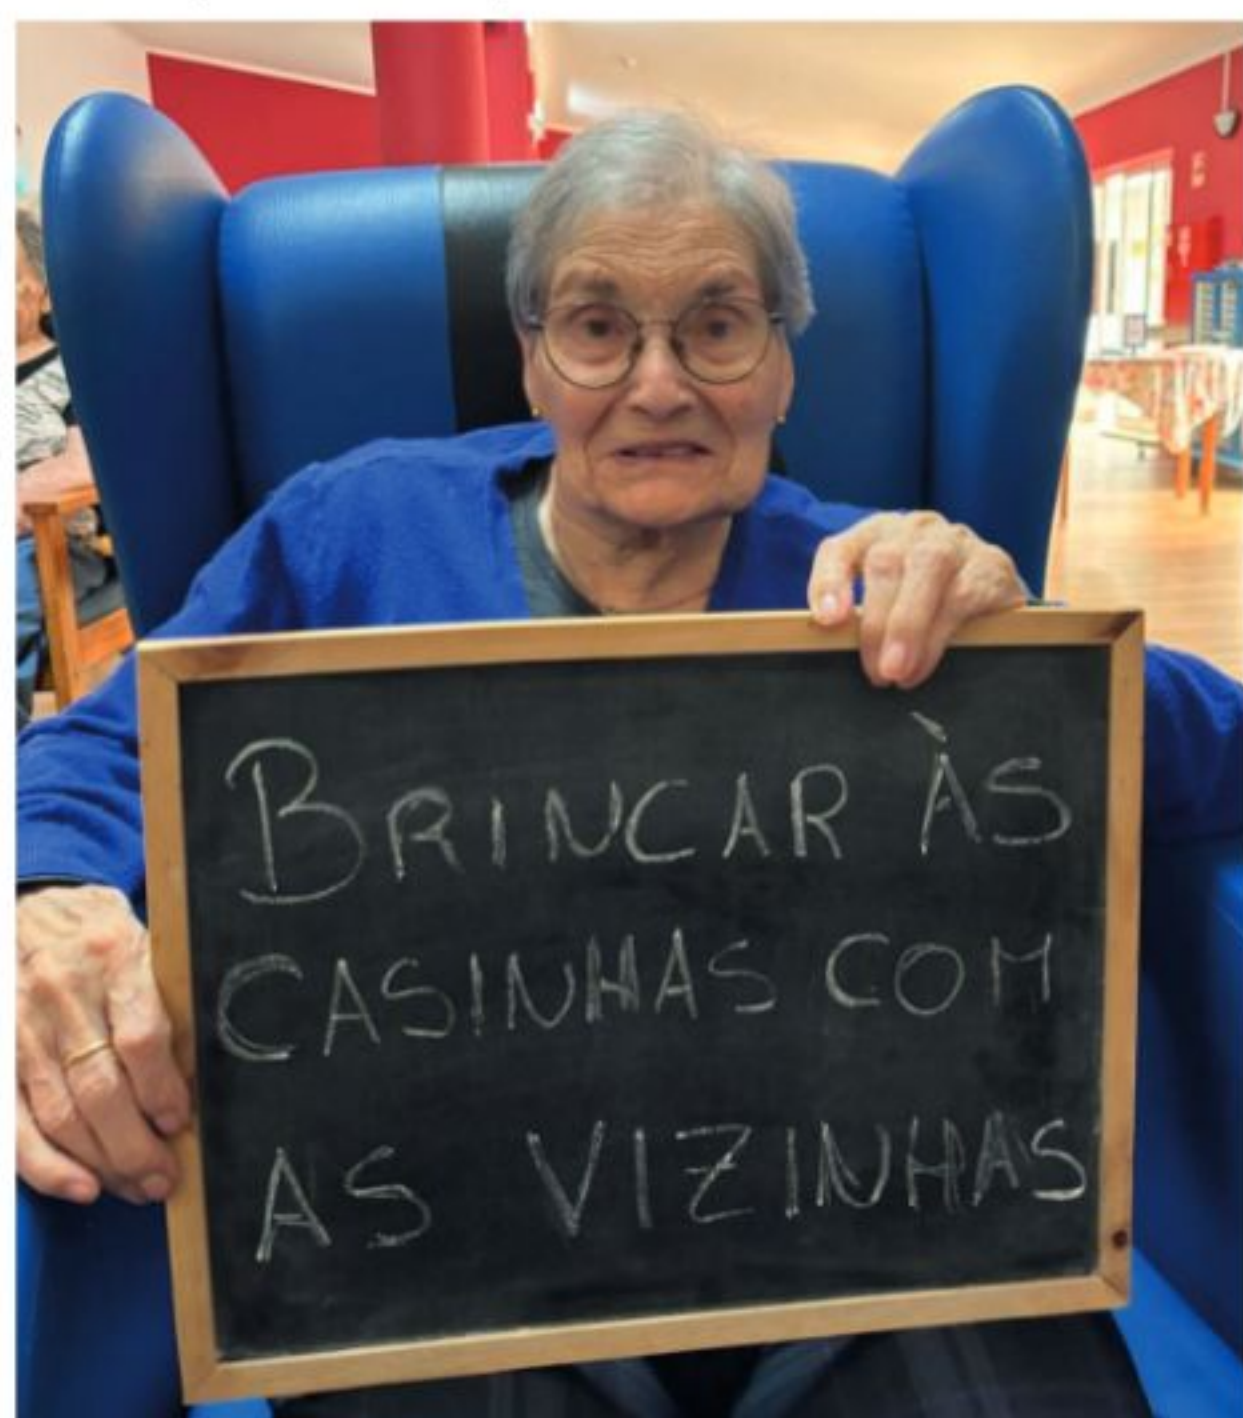 BRINCAR ÀS
CASINHAS COM
AS VIZINHAS